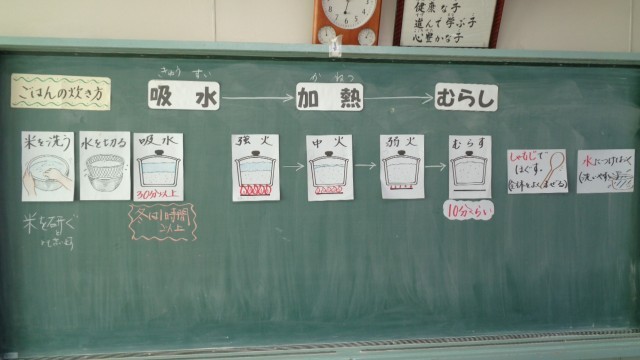 健康な子
進んで学ぶ子
心豊かな子
ごはんの炊き方
きゅう すい
吸水
か ねつ
加熱
むらし
米を洗う
水を切る
吸水
30分以上
冬は1時間
以上
強火
中火
弱火
むらす
10分くらい
しゃもじで
ほぐす。
(全体をよくまぜる)
水につけておく
(洗いやすい)
米を研ぐ